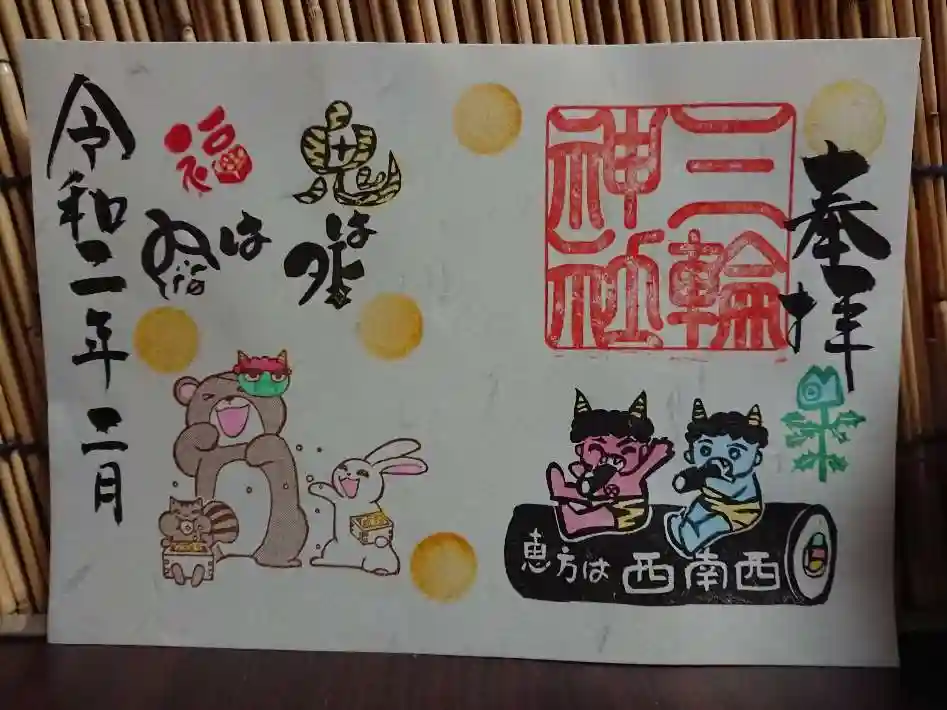 奉拝
三輪
神社
恵方は 西南西
鬼は
外
福は
内
令和二年 二月